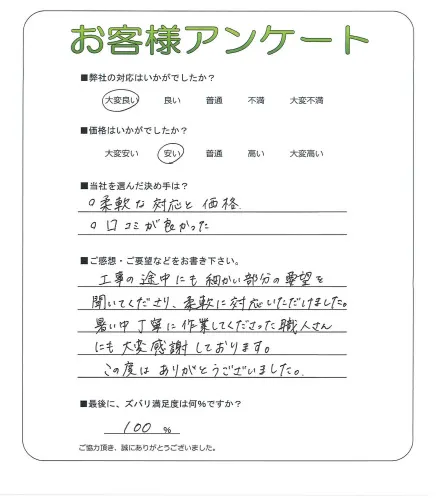 お客様アンケート
■弊社の対応はいかがでしたか？
大変良い 良い 普通 不満 大変不満
■価格はいかがでしたか？
大変安い 安い 普通 高い 大変高い
■当社を選んだ決め手は？
○柔軟な対応と価格
○口コミが良かった
■ご感想・ご要望などをお書き下さい。
工事の途中にも細かい部分の要望を
聞いてくださり、柔軟に対応いただけました。
暑い中丁寧に作業してくださった職人さん
にも大変感謝しております。
この度はありがとうございました。
■最後に、ズバリ満足度は何％ですか？
100 %
ご協力頂き、誠にありがとうございました。